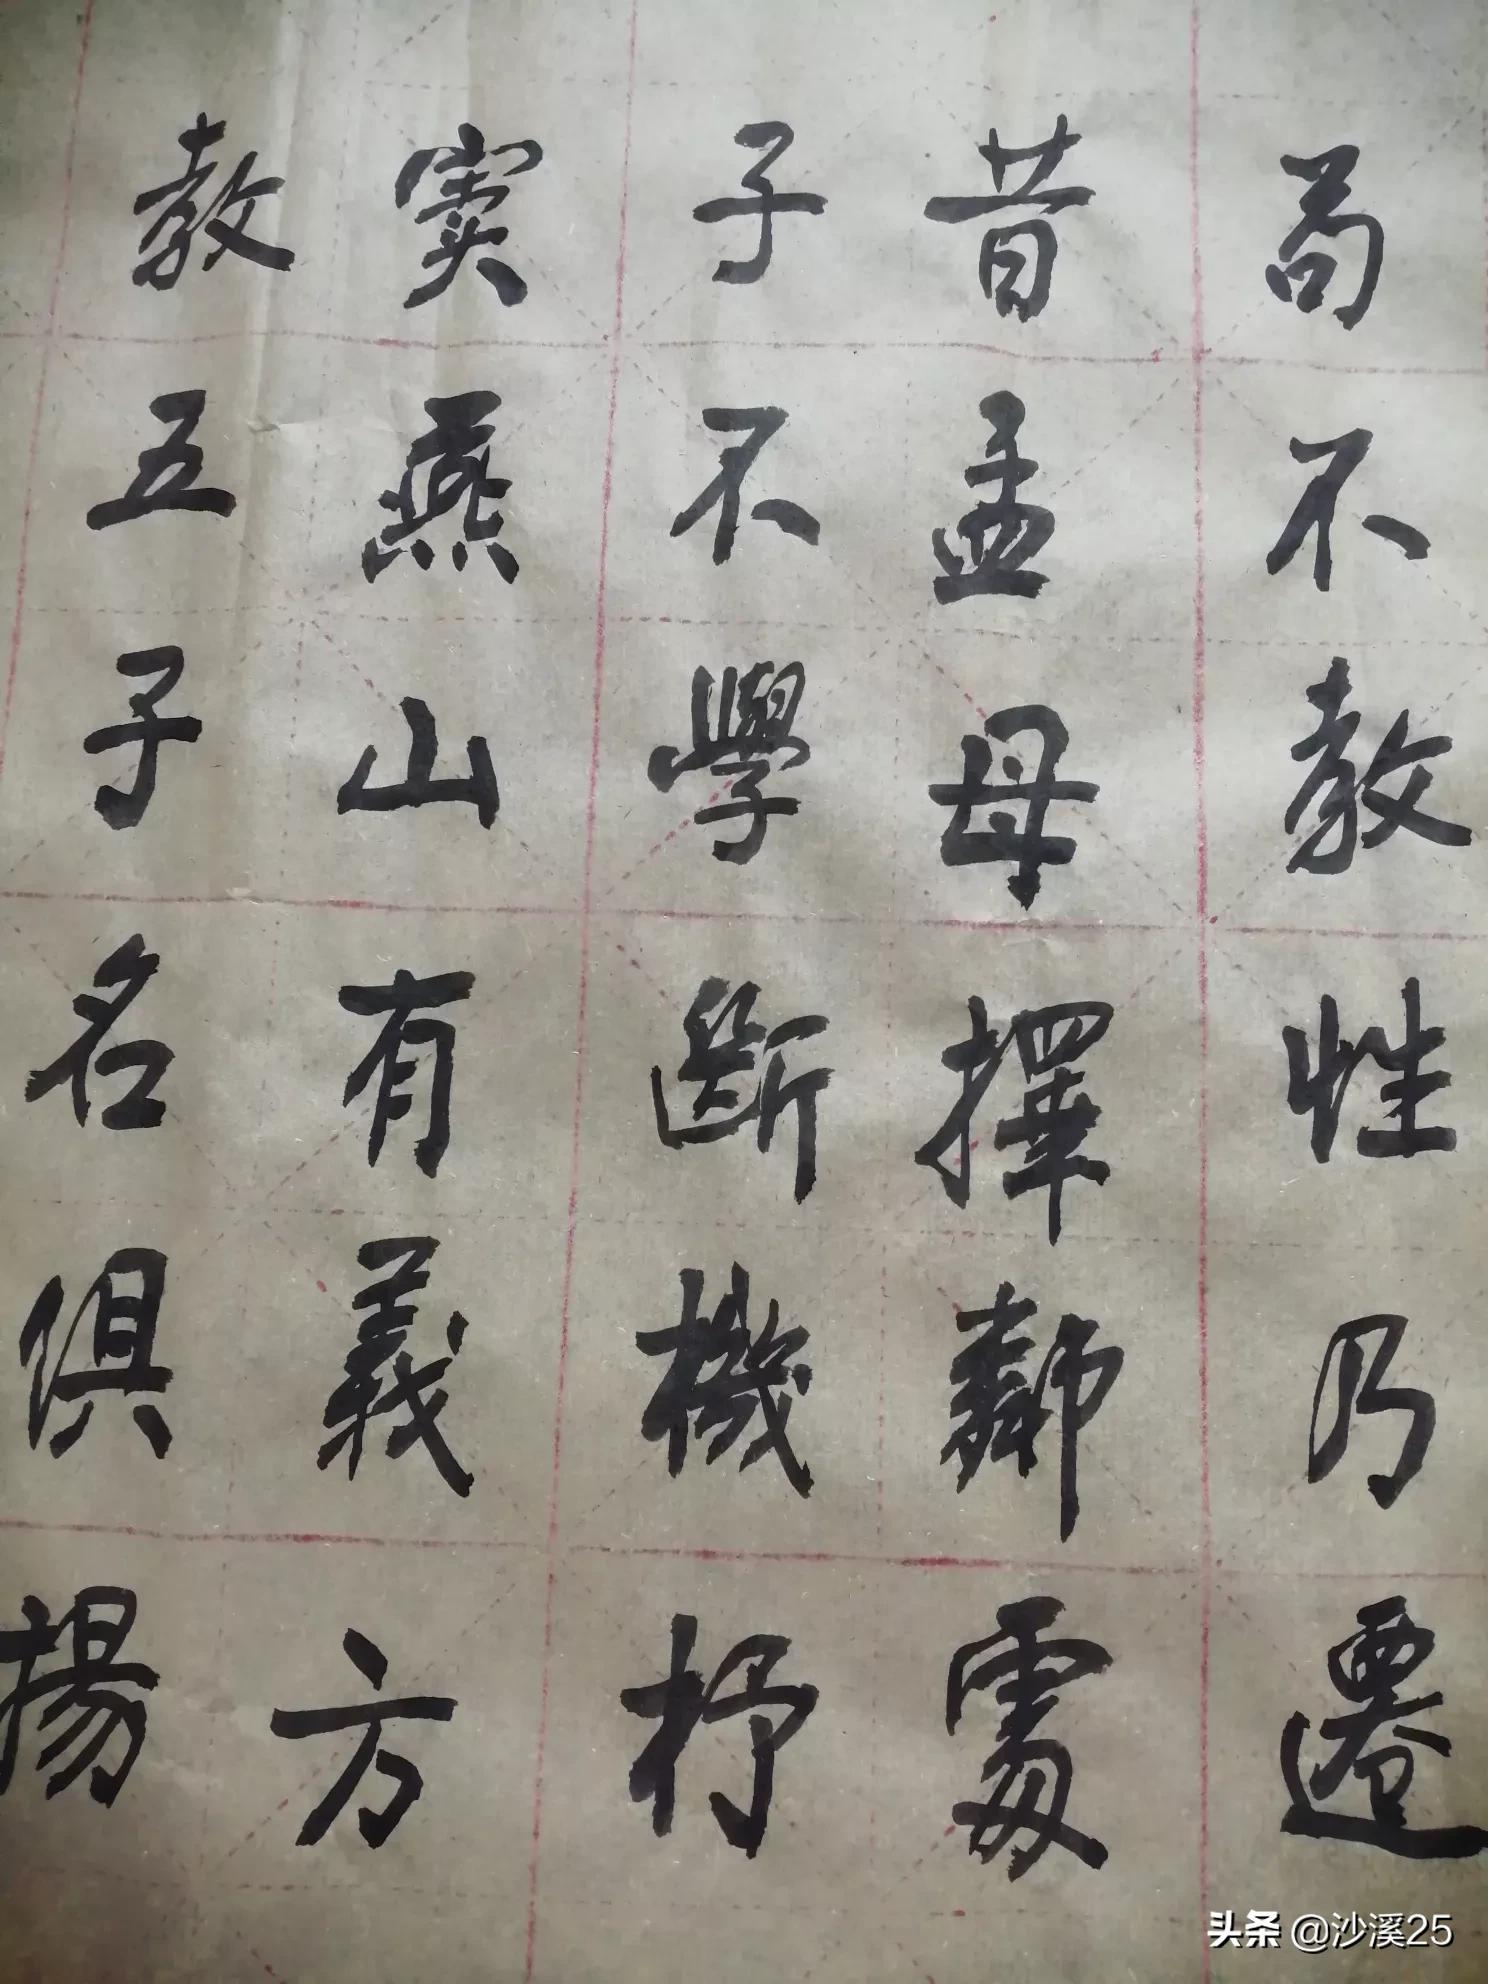 苟不教性乃遷
昔孟母擇鄰處
子不學斷機杼
竇燕山有義方
教五子名俱揚
头条 @沙溪25